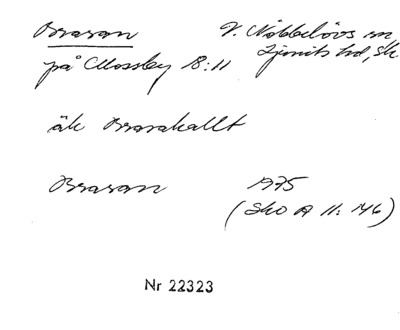 Brasan V. Nöbbelövs sn,
på Mossby 18:11 Ljunits hd, Sk
äk Brasakallt
Brasan 1975
(Sko A 11:146)
Nr 22323